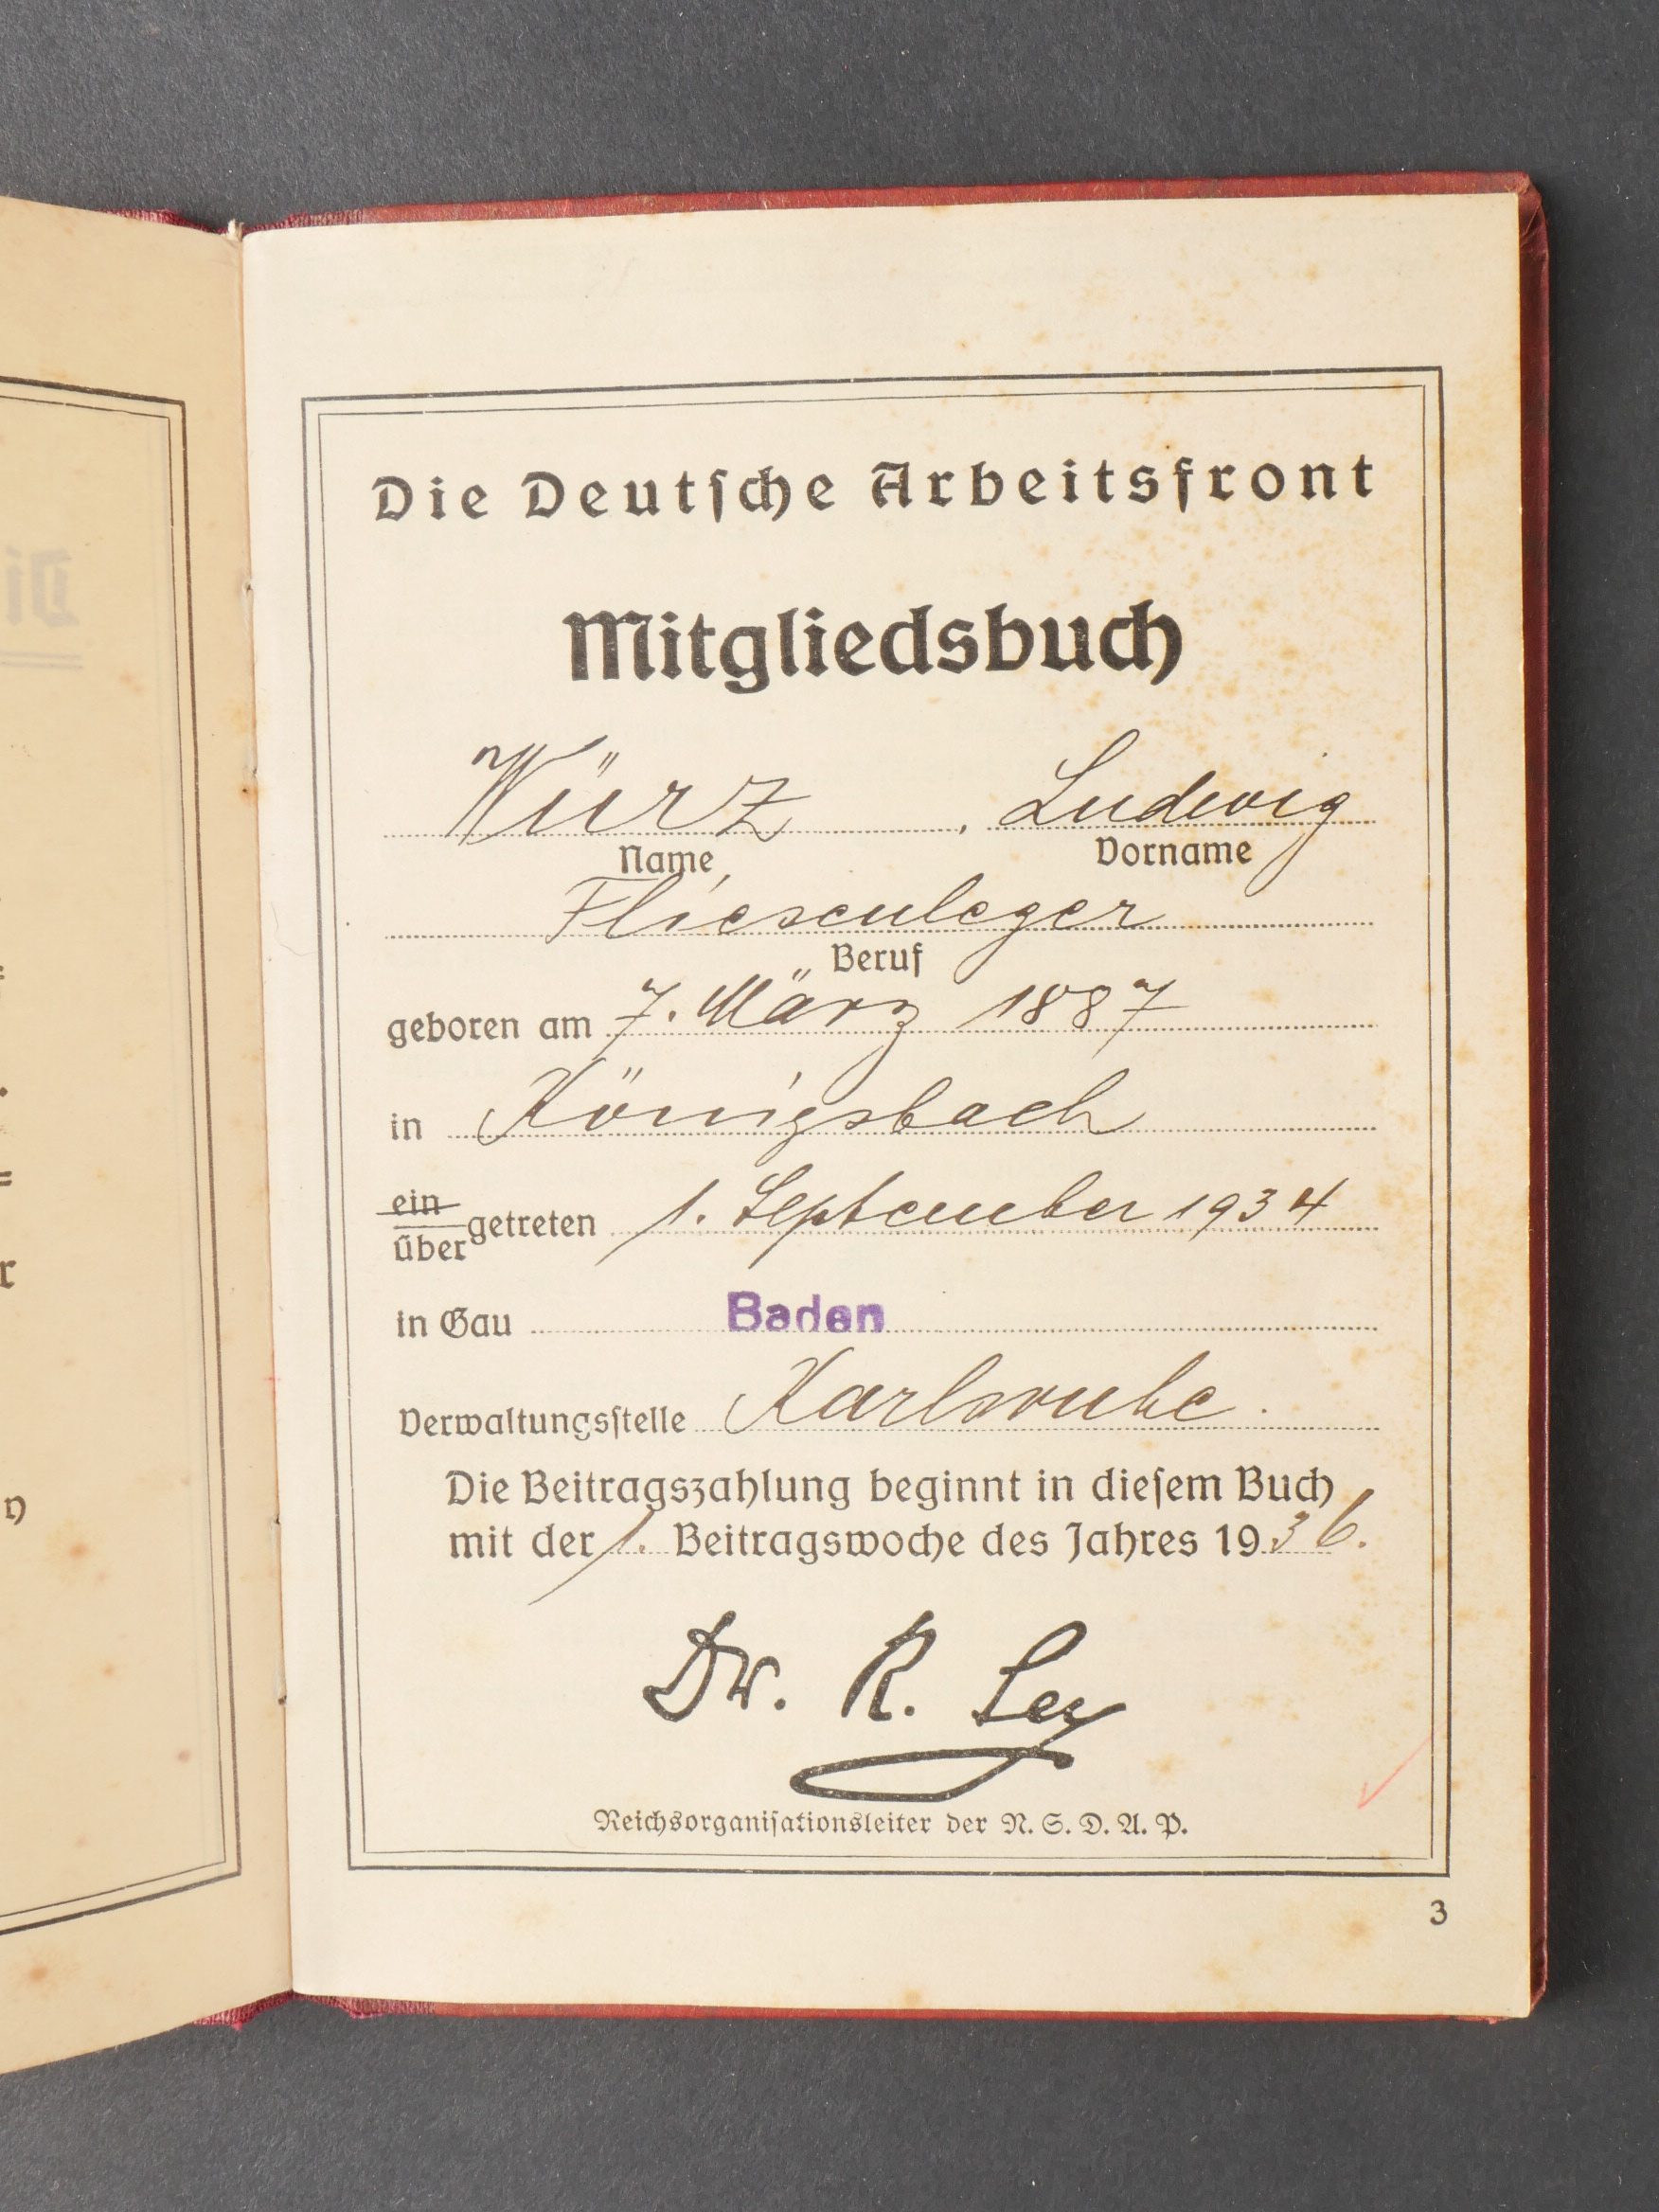 Die Deutsche Arbeitsfront
Mitgliedsbuch
Würz, Ludwig
Name Vorname
Fliesenleger
Beruf
geboren am 7. März 1887
in Königsbach
ein
über getreten 1. September 1934
in Gau Baden
Verwaltungsstelle Karlsruhe.
Die Beitragszahlung beginnt in diesem Buch
mit der 1. Beitragswoche des Jahres 1936.
Dr. R. Ley
Reichsorganisationsleiter der N. S. D. A. P.
3